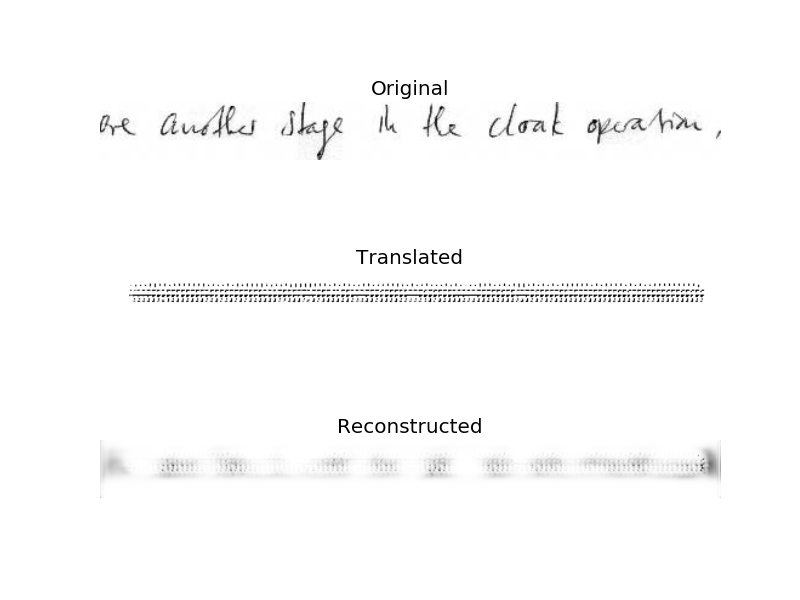 Original
are another stage in the cloak operation,
Translated
Reconstructed